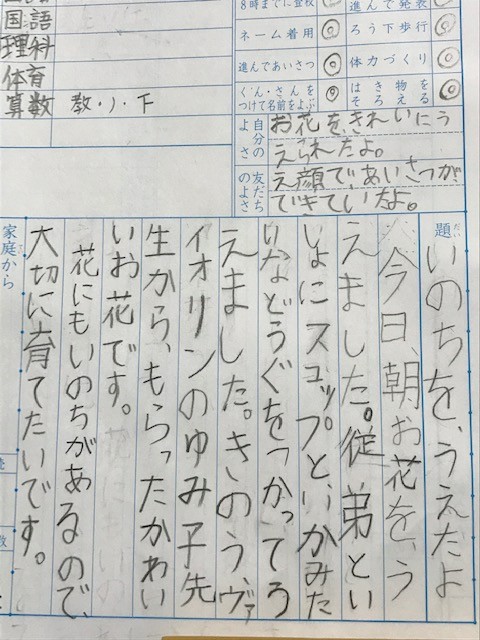 国語
理科
体育
算数 教・ノ・下
8時までに登校
進んで発表
ネーム着用 ◎
ろう下歩行 ◎
進んであいさつ ◎
体力づくり ◎
くん・さんをつけて名前をよぶ ◎
はき物をそろえる ◎
自分のよさ
お花を、きれいにう
えられたよ。
友だちのよさ
え顔で、あいさつが
できていたよ。
題 いのちを、うえたよ
今日、朝お花を、う
えました。従弟とい
しょにスコップといかみた
いなどうぐをつかってう
えました。きのう、ヴァ
イオリンのゆみ子先
生から、もらったかわい
いお花です。
花にもいのちがあるので、
大切に育てたいです。
家庭から